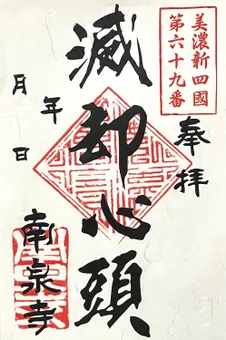 美濃新四國
第六十九番
奉拝
滅却心頭
年
月 日
南泉寺